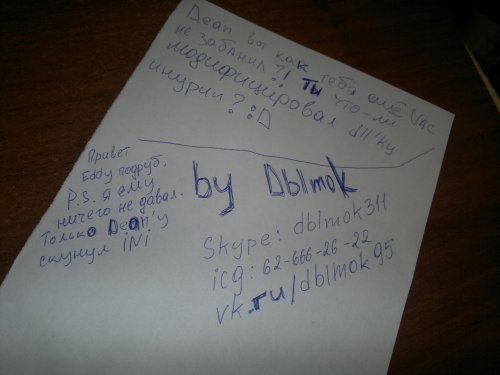 Dean вот как тебя ещё VAC
не забанил?! Ты что-ли
модифицировал dll'ку
инурии? :D
Привет
Eddy подруб.
P.S. я ему
ничего не давал.
Только Dean'у
скинул ini
by Dblmok
Skype: dblmok311
icq: 62-666-26-22
vk.ru/dblmok95